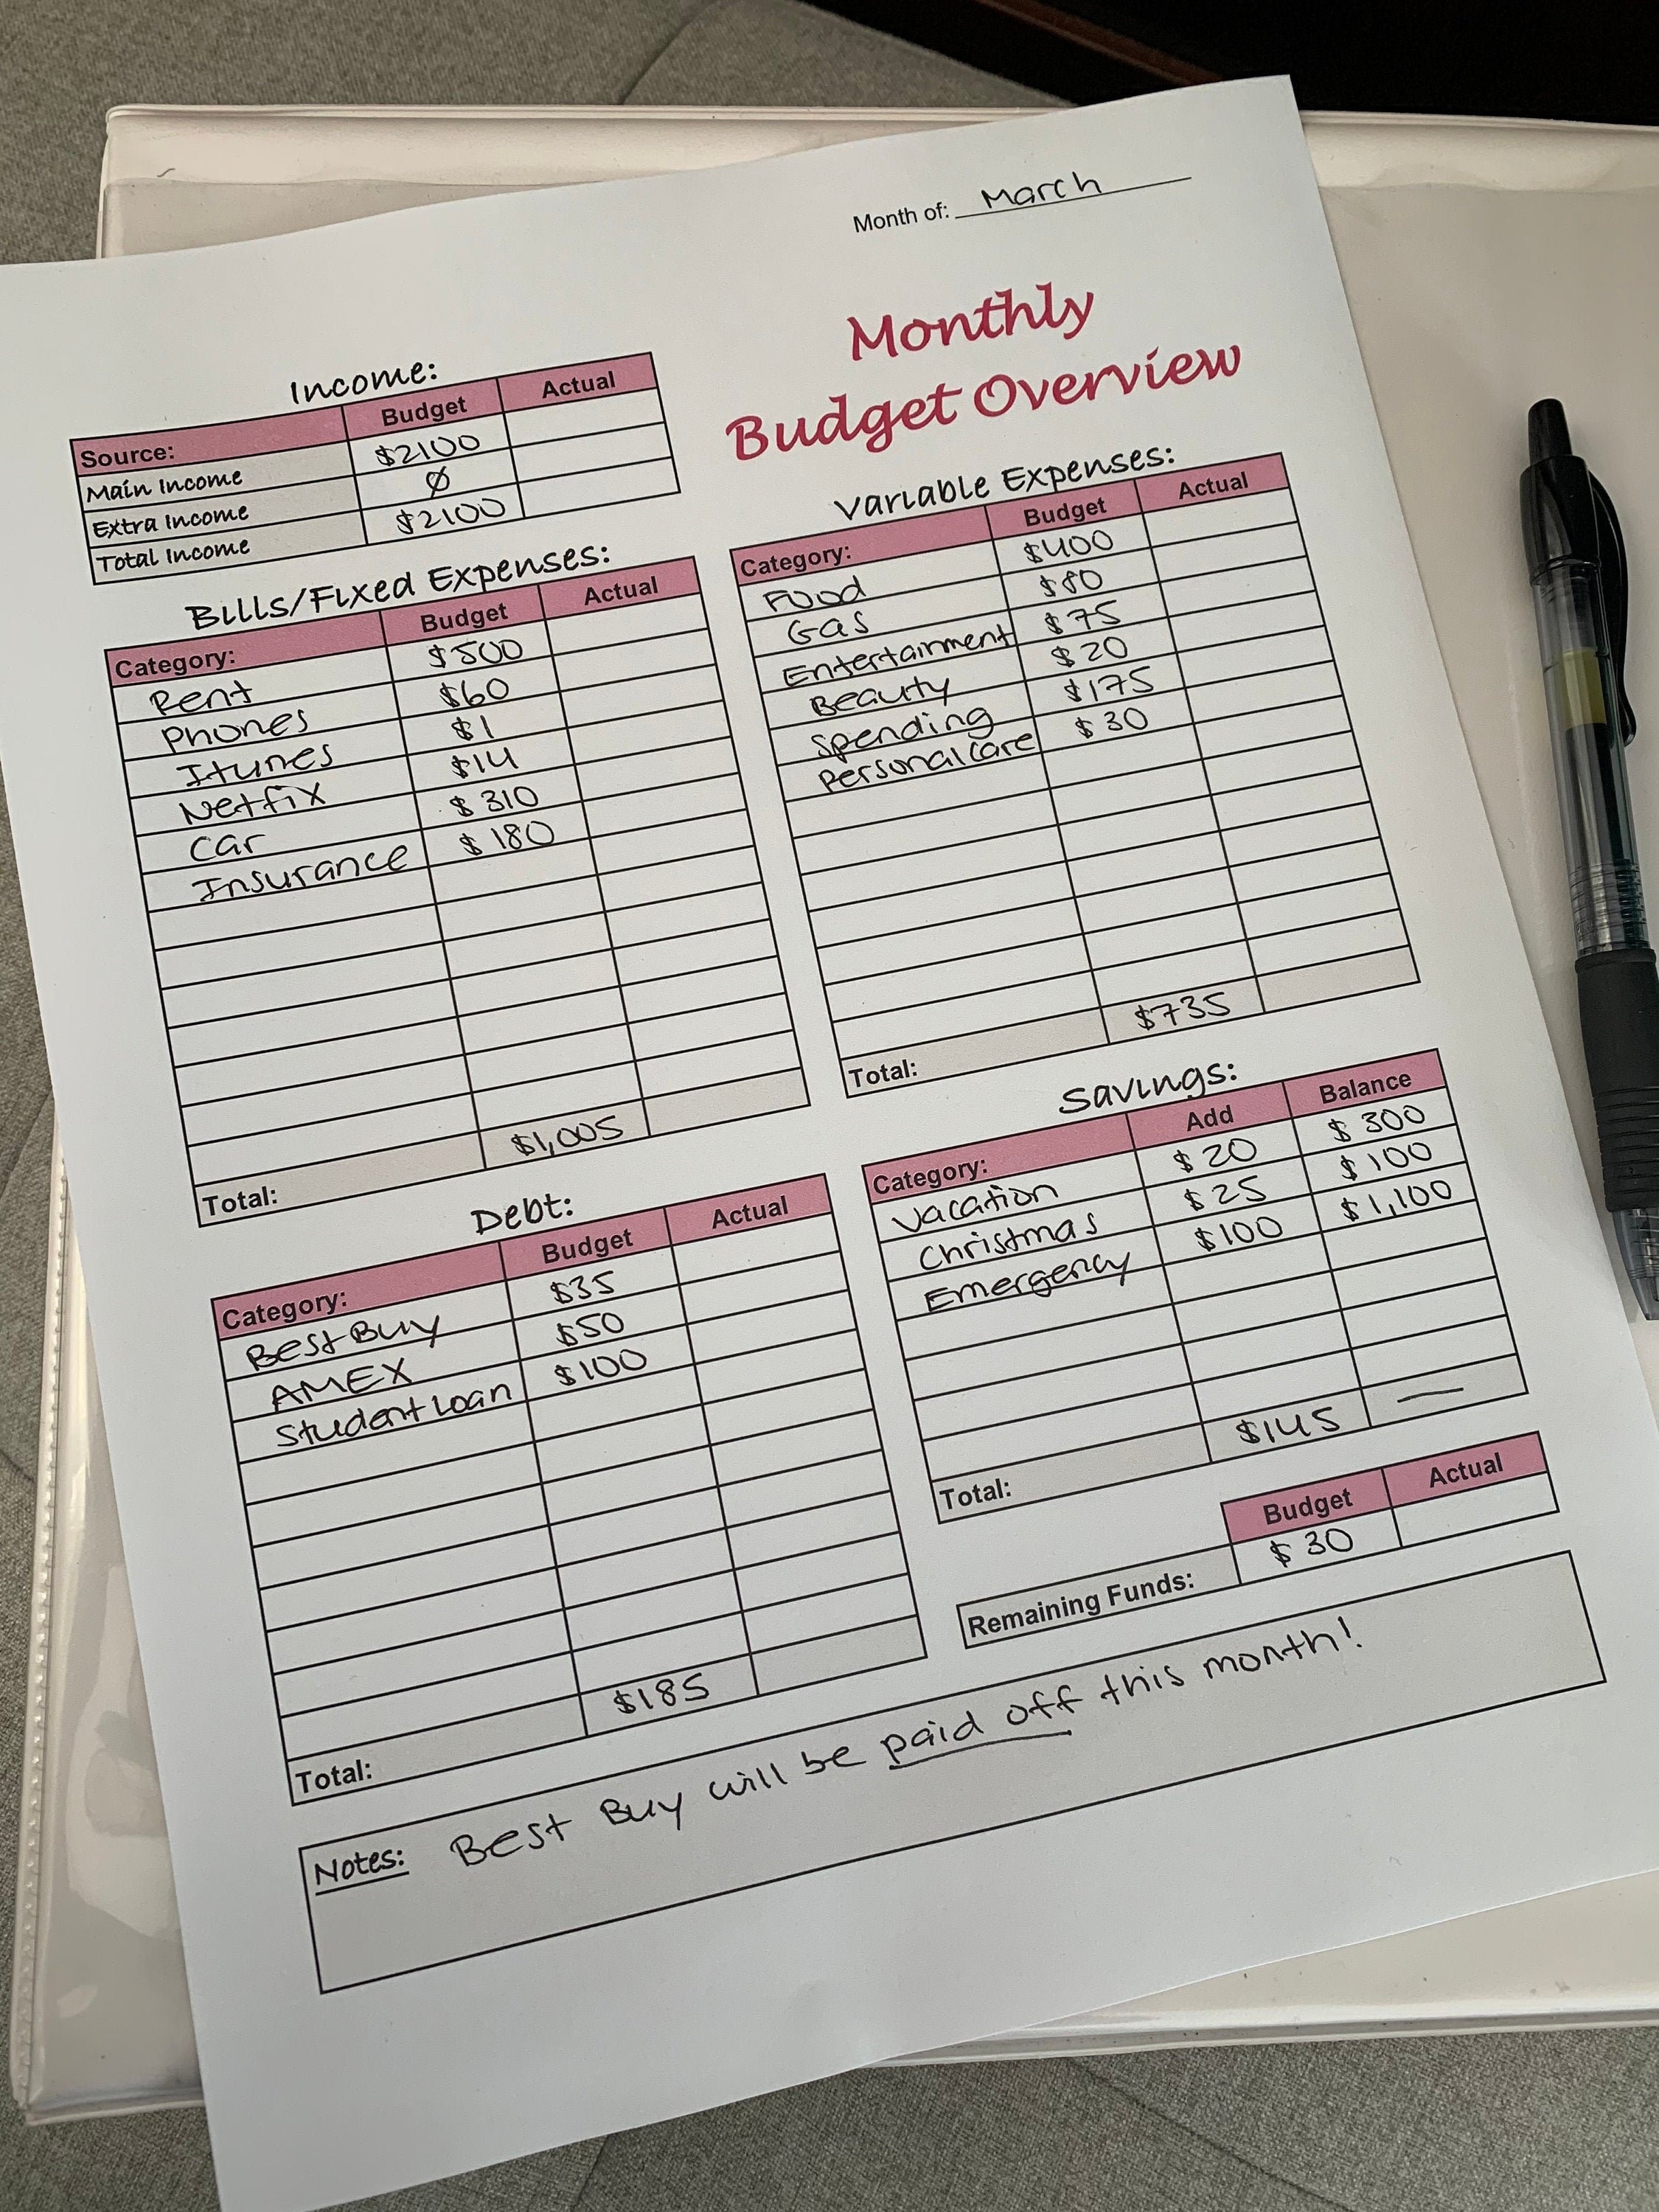 Month of: March
Monthly
Budget Overview
Income:
Source: Budget Actual
Main Income $2100
Extra Income Ø
Total Income $2100
Bills/Fixed Expenses:
Category: Budget Actual
Rent $500
Phones $60
Itunes $1
Netflix $14
Car $310
Insurance $180
Total: $1,005
Variable Expenses:
Category: Budget Actual
Food $400
Gas $80
Entertainment $75
Beauty $20
Spending $175
Personal Care $30
Total: $735
Debt:
Category: Budget Actual
Best Buy $35
AMEX $50
Student Loan $100
Total: $185
Savings:
Category: Add Balance
Vacation $20 $300
Christmas $25 $100
Emergency $100 $1,100
Total: $145 —
Budget Actual
Remaining Funds: $30
Notes: Best Buy will be paid off this month!